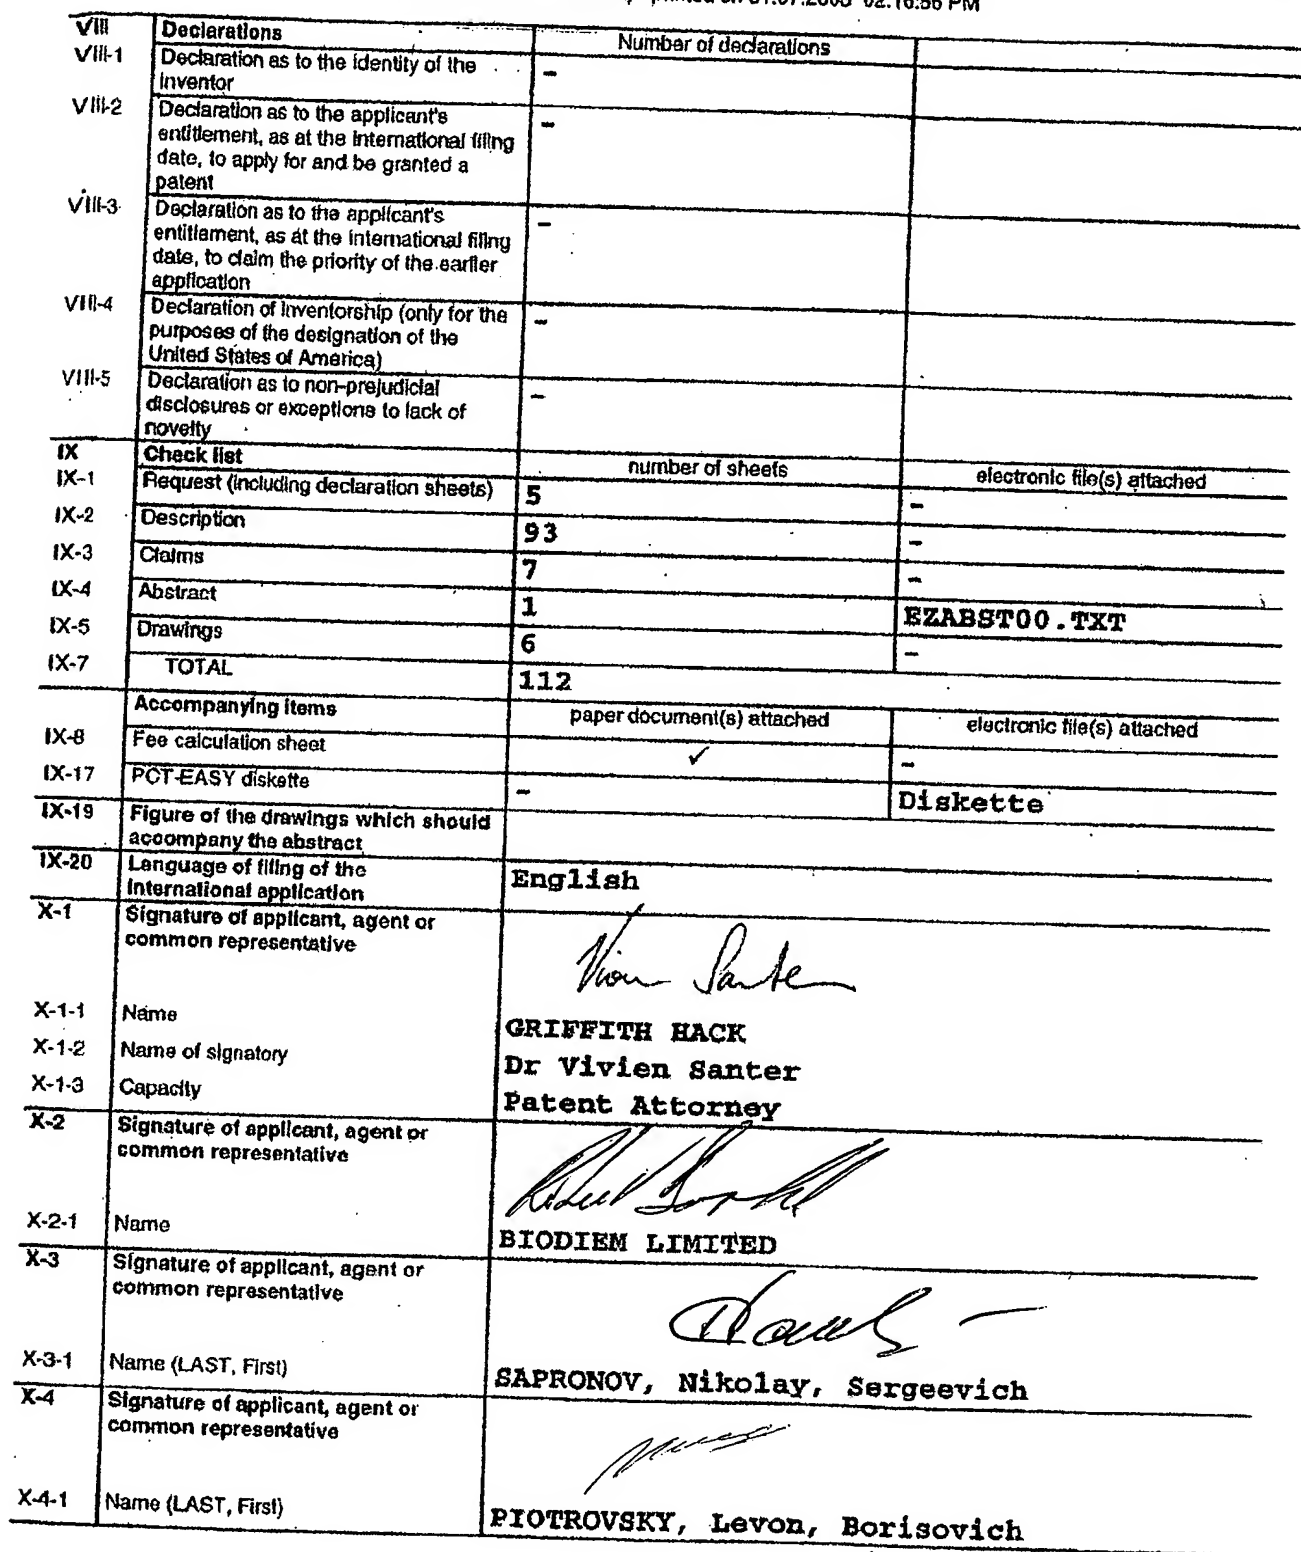 02:16:56 PM
VIII Declarations Number of declarations
VIII-1 Declaration as to the identity of the
inventor -
VIII-2 Declaration as to the applicant's
entitlement, as at the international filing
date, to apply for and be granted a
patent -
VIII-3 Declaration as to the applicant's
entitlement, as at the international filing
date, to claim the priority of the earlier
application -
VIII-4 Declaration of inventorship (only for the
purposes of the designation of the
United States of America) -
VIII-5 Declaration as to non-prejudicial
disclosures or exceptions to lack of
novelty -
IX Check list number of sheets electronic file(s) attached
IX-1 Request (including declaration sheets) 5 -
IX-2 Description 93 -
IX-3 Claims 7 -
IX-4 Abstract 1 EZABST00.TXT
IX-5 Drawings 6 -
IX-7 TOTAL 112
Accompanying items paper document(s) attached electronic file(s) attached
IX-8 Fee calculation sheet ✓ -
IX-17 PCT-EASY diskette - Diskette
IX-19 Figure of the drawings which should
accompany the abstract
IX-20 Language of filing of the
international application English
X-1 Signature of applicant, agent or
common representative
X-1-1 Name GRIFFITH HACK
X-1-2 Name of signatory Dr Vivien Santer
X-1-3 Capacity Patent Attorney
X-2 Signature of applicant, agent or
common representative
X-2-1 Name BIODIEM LIMITED
X-3 Signature of applicant, agent or
common representative
X-3-1 Name (LAST, First) SAPRONOV, Nikolay, Sergeevich
X-4 Signature of applicant, agent or
common representative
X-4-1 Name (LAST, First) PIOTROVSKY, Levon, Borisovich